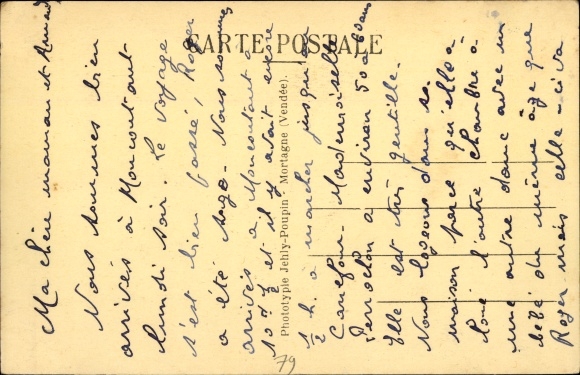 CARTE POSTALE
Phototypie Jehly-Poupin - Mortagne (Vendée).
Ma chère maman et
Nous sommes bien
arrivés à Moncoutant
lundi soir. Le voyage
s'est bien passé, Roger
a été sage. Nous sommes
arrivés à Moncoutant à
10h ½ et il y avait encore
½ h. à marcher jusqu'à
Carrefour. Mademoiselle
a environ 50 à 60 ans
Elle est très gentille.
Nous logeons dans sa
maison parce qu'elle a
loué l'autre chambre à
une autre dame avec un
bébé du même âge que
Roger mais celle-ci va
79